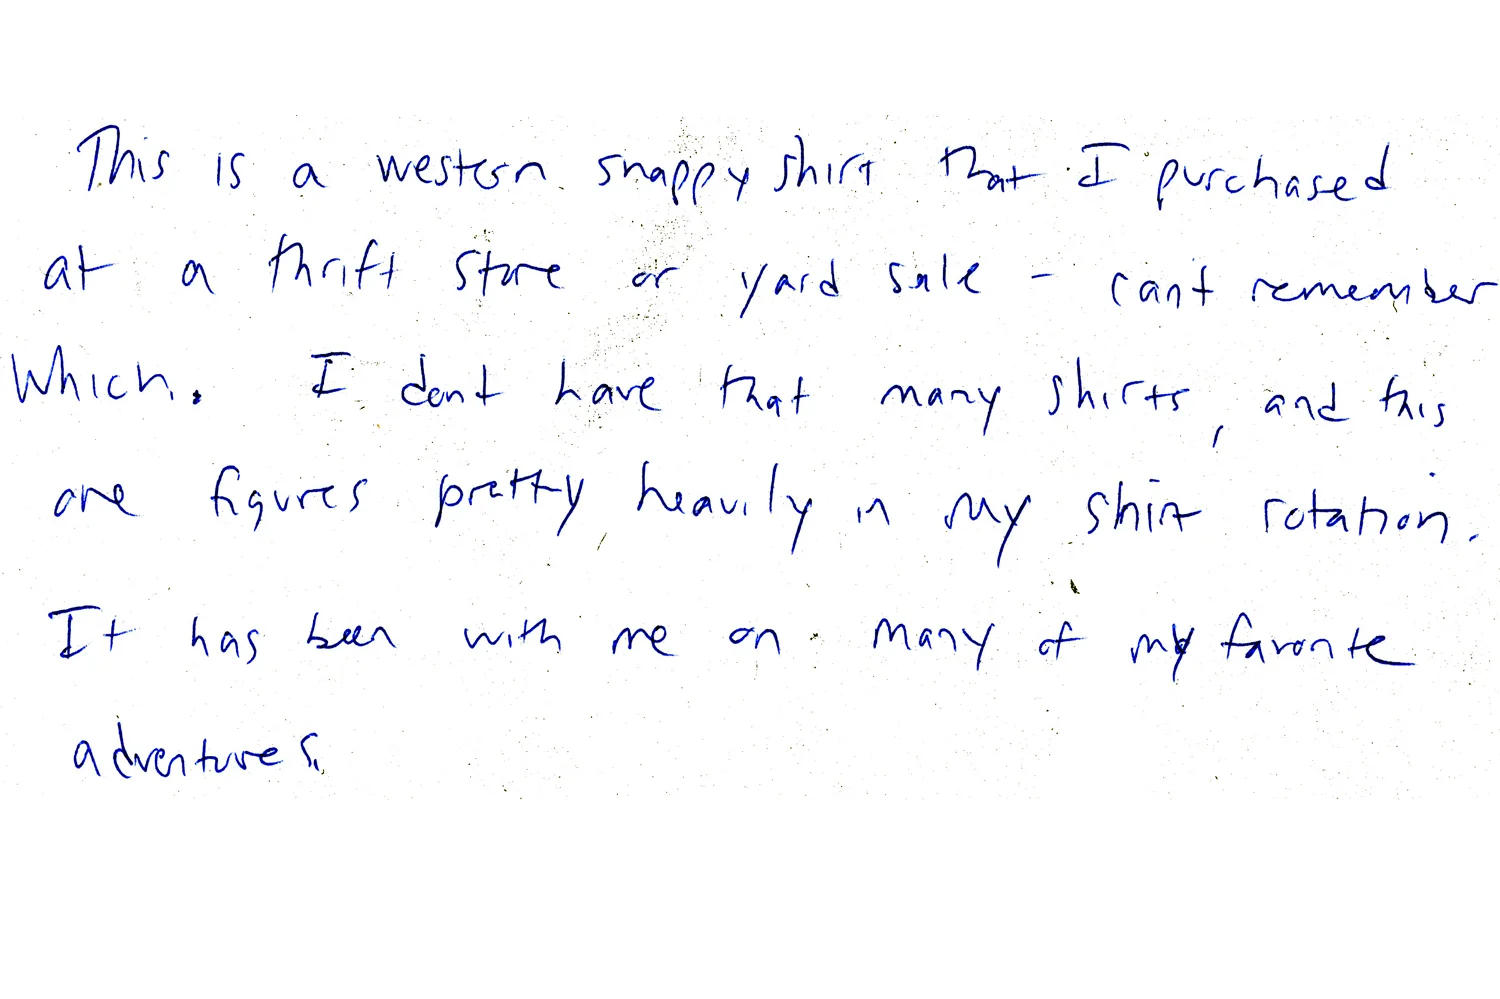 This is a western snappy shirt that I purchased
at a thrift store or yard sale - cant remember
which. I dont have that many shirts, and this
one figures pretty heavily in my shirt rotation.
It has been with me on many of my favorite
adventures.